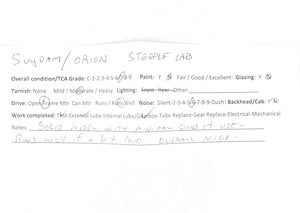 SUYDAM/ORION STEEPLE CAB
Overall condition/TCA Grade: C-1-2-3-4-5-6-7-8-9 Paint: Y N Fair / Good / Excellent Glazing: Y N
Tarnish: None Mild / Moderate / Heavy Lighting: Front Rear Other:
Drive: Open Frame Mtr Can Mtr Runs / Runs Well Noise: Silent-2-3-4-5-6-7-8-9-Ouch! Backhead/Cab: Y N
Work completed: Test-External Lube-Internal Lube/Gearbox-Tube Replace-Gear Replace-Electrical-Mechanical
Notes: SOLID MODEL WITH MINIMUM SIGNS OF USE -
RUNS WELL IF A BIT OVERALL NICE -